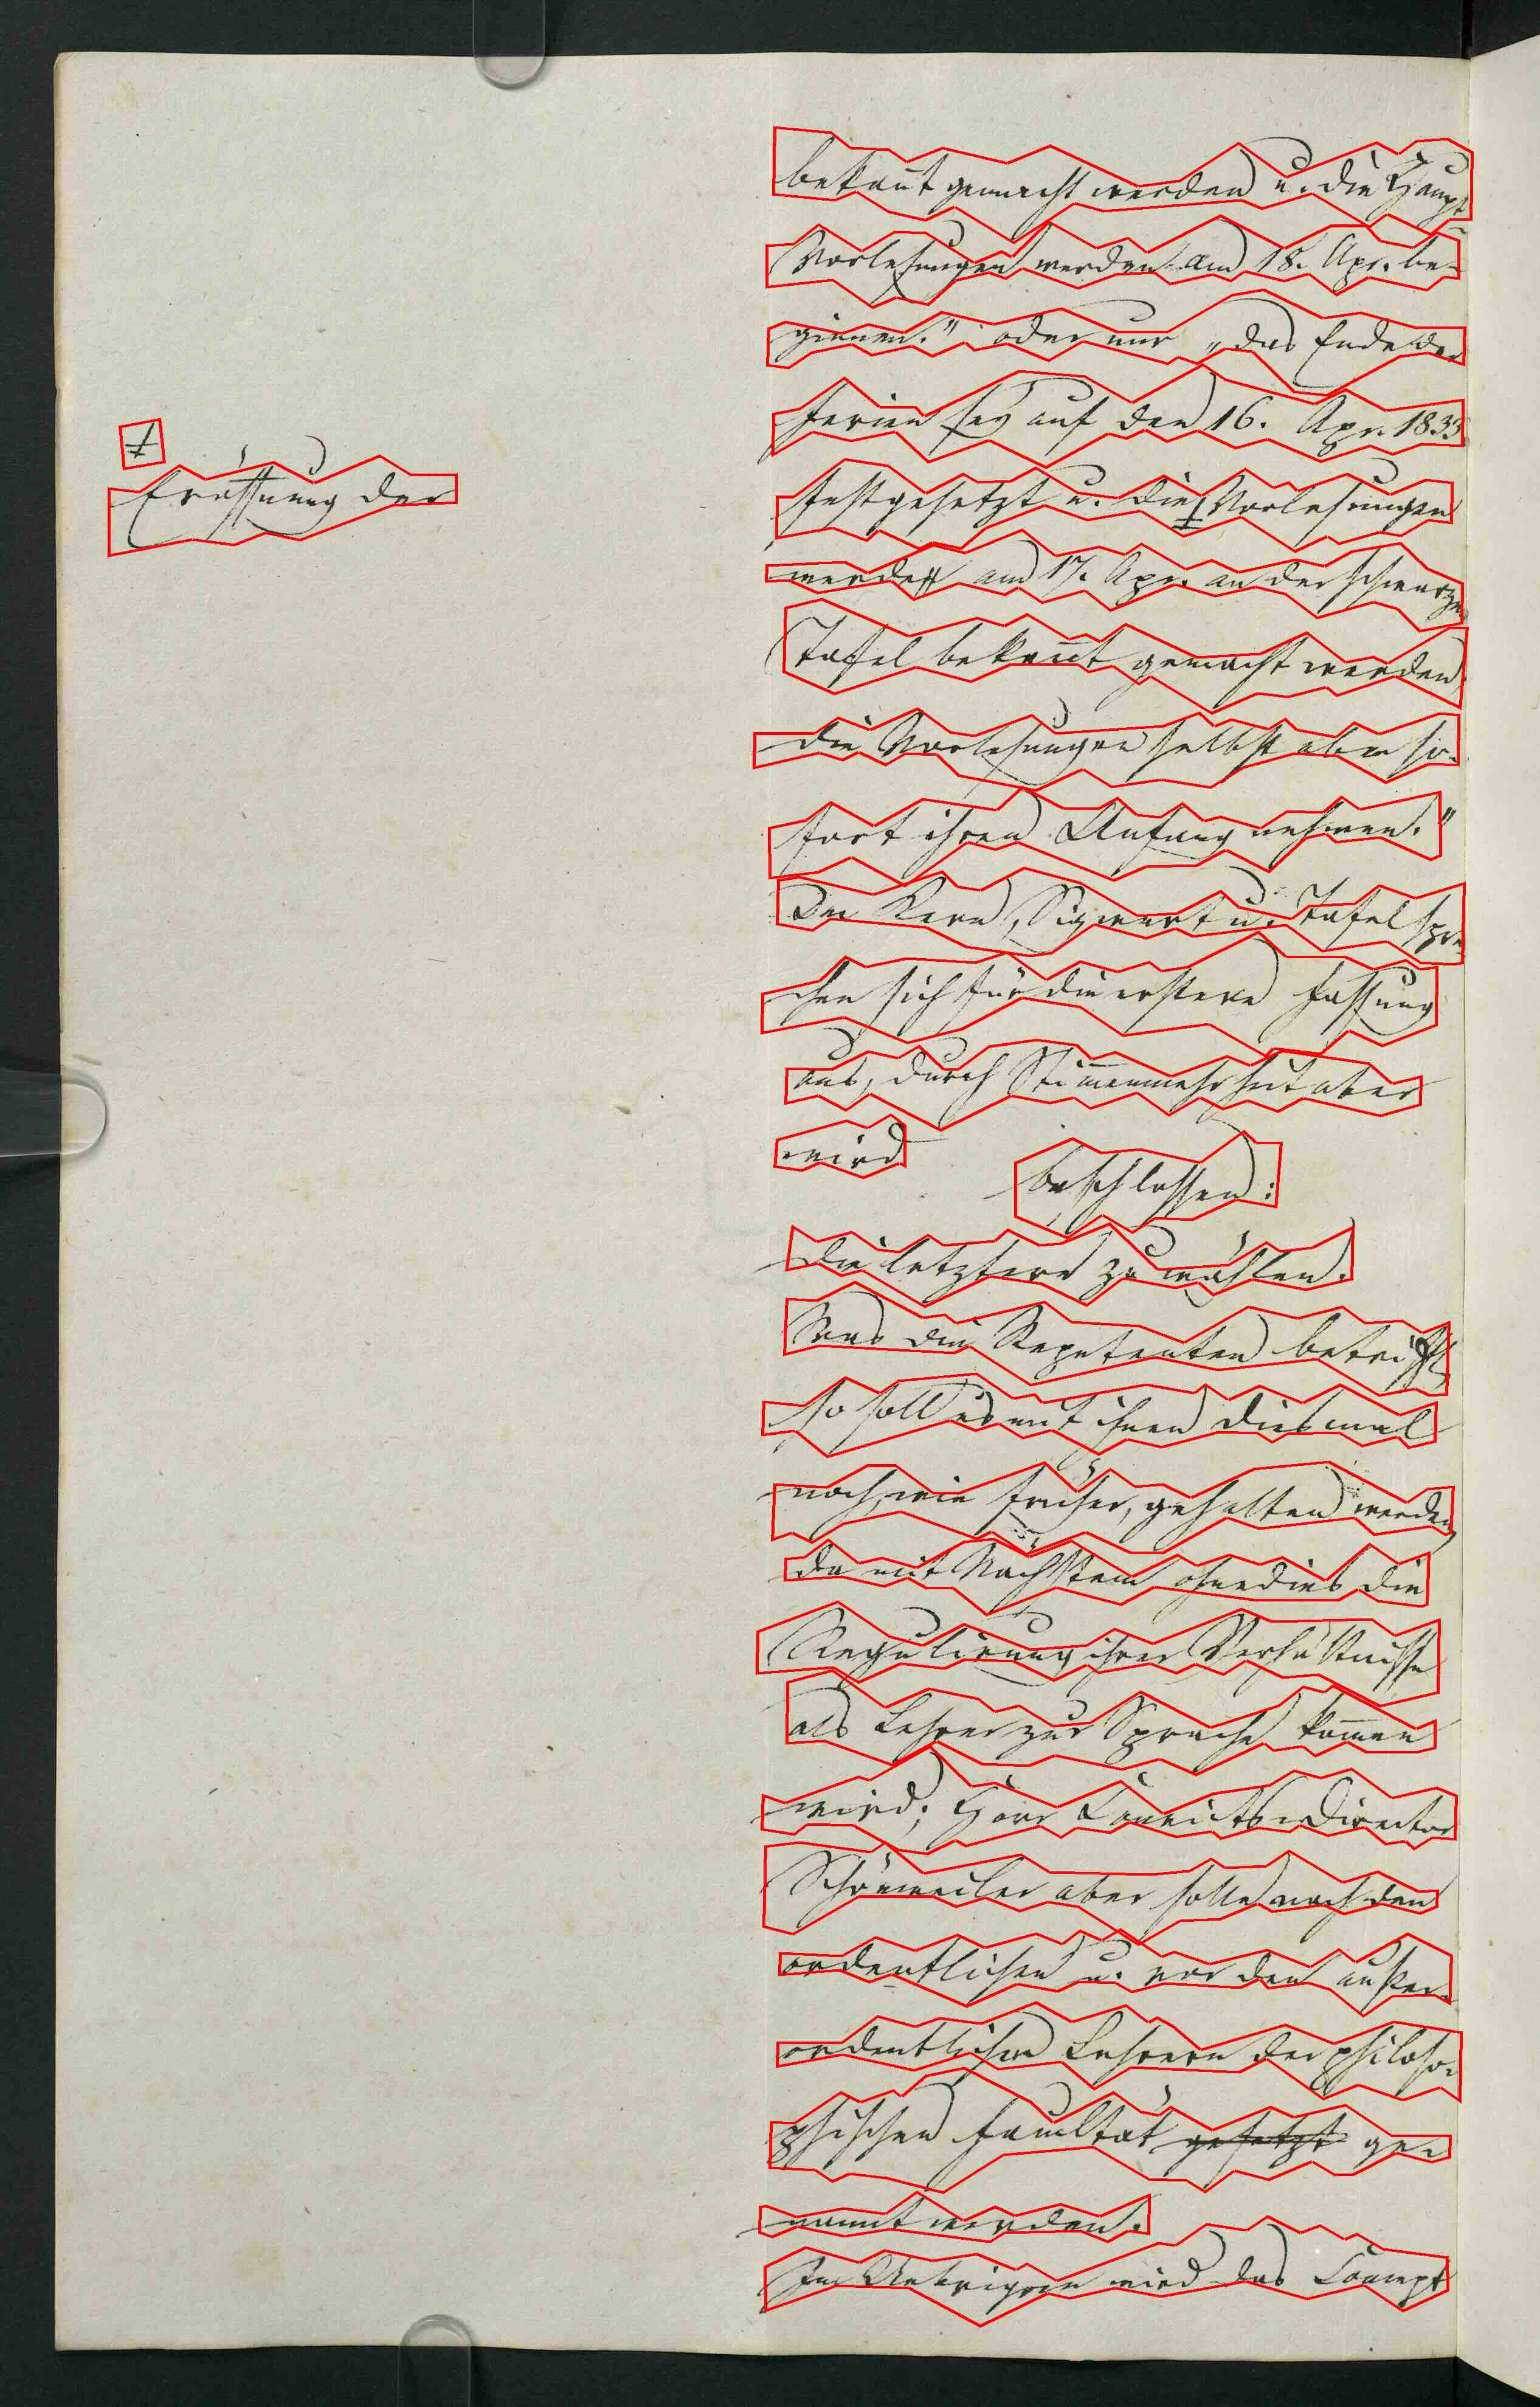 ł
Eröffnung der
bekañt gemacht werden u. die Haupt
Vorlesungen werden am 18. Apr. be-
ginnen." oder nur „das Ende der
Ferien sey auf den 16. Apr. 1833
festgesetzt u. die ł Vorlesungen
werde am 17. Apr. an der schwarzen
Tafel bekañt gemacht werden
die Vorlesungen selbst aber so-
fort ihren Anfang nehmen."
Die Kern, Sigwart u. Tafel spre-
chen sich für die erstere Fassung
aus, durch Stim̄enmehrheit aber
wird
beschlossen:
die letztere zu wählen.
Was die Repetenten betrifft
so soll es mit ihnen diesmal
noch, wie früher, gehalten werden,
da mit Nächstem ohnedies die
Regulirung ihrer Verhältnisse
als Lehrer zur Sprache kom̄en
wird; Herr Convicts-Director
Schönweiler aber solle nach den
ordentlichen u. vor den außer-
ordentlichen Lehrern der philoso-
phischen Facultät gesetzt ge-
nannt werden.
Im Uebrigen wird das Concept